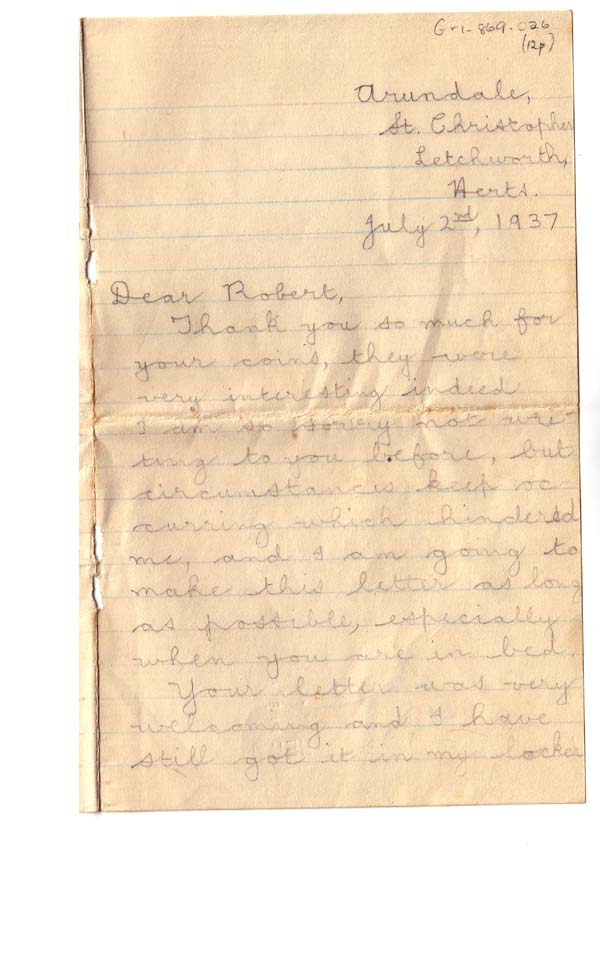 G-1-869.026
(12p)
Arundale,
St. Christopher
Letchworth,
Herts.
July 2nd, 1937
Dear Robert,
Thank you so much for
your coins, they were
very interesting indeed
I am so sorry not wri-
ting to you before, but
circumstances keep oc-
curring which hindered
me, and I am going to
make this letter as long
as possible, especially
when you are in bed.
Your letter was very
welcoming and I have
still got it in my locker